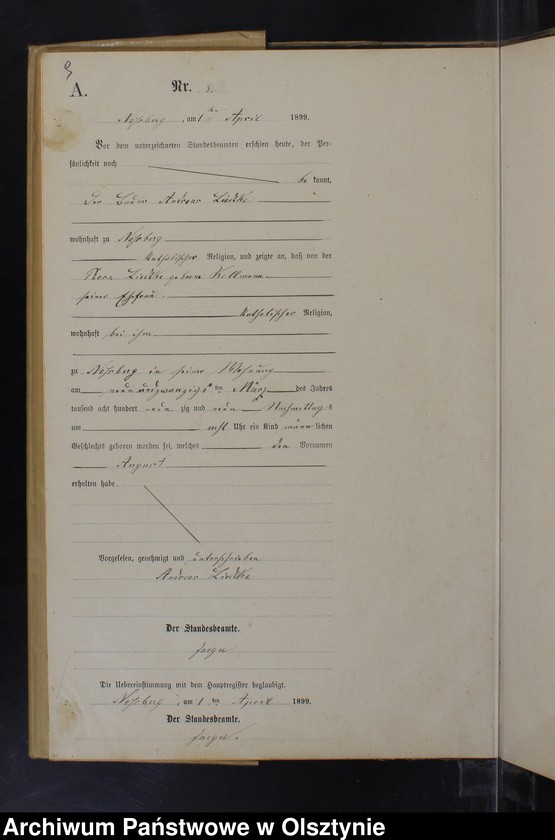 9
A.
Nr. 8.
Noßberg, am 1ten April 1899.
Vor dem unterzeichneten Standesbeamten erschien heute, der Per-
sönlichkeit nach
be kannt,
der Bauer Andreas Liedtke
wohnhaft zu Noßberg
katholischer Religion, und zeigte an, daß von der
Rosa Liedtke geborne
seiner Ehefrau
katholischer Religion,
wohnhaft bei ihm
zu Noßberg in seiner Wohnung
am neun und zwanzigsten März des Jahres
tausend acht hundert neun zig und neun Nachmittag s
um acht Uhr ein Kind männ lichen
Geschlechts geboren worden sei, welches den Vornamen
August
erhalten habe
Vorgelesen, genehmigt und unterschrieben
Andreas Liedtke
Der Standesbeamte.
Jaeger
Die Uebereinstimmung mit dem Hauptregister beglaubigt.
Noßberg, am 1ten April 1899.
Der Standesbeamte.
Jaeger.
Archiwum Państwowe w Olsztynie